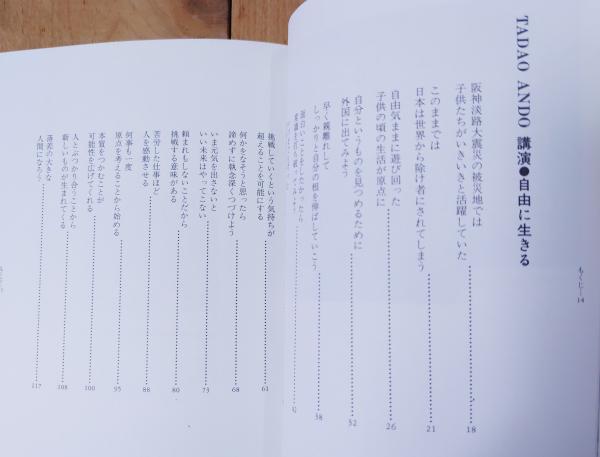 もくじ—14
TADAO ANDO 講演●自由に生きる
阪神淡路大震災の被災地では
子供たちがいきいきと活躍していた 18
このままでは
日本は世界から除け者にされてしまう 21
自由気ままに遊び回った
子供の頃の生活が原点に 26
自分というものを見つめるために
外国に出てみよう 32
早く親離れして
しっかりと自分の根を伸ばしていこう 38
面白いことをしたかったら
挑戦していくという気持ちが
超えることを可能にする 61
何かをなそうと思ったら
諦めずに執念深くつづけよう 68
いま元気を出さないと
いい未来はやってこない 73
頼まれもしないことだから
挑戦する意味がある 80
苦労した仕事ほど
人を感動させる 88
何事も一度
原点を考えることから始める 95
本質をつかむことが
可能性を広げてくれる 100
人とぶつかり合うことから
新しいものが生まれてくる 108
落差の大きな
人間になろう 117